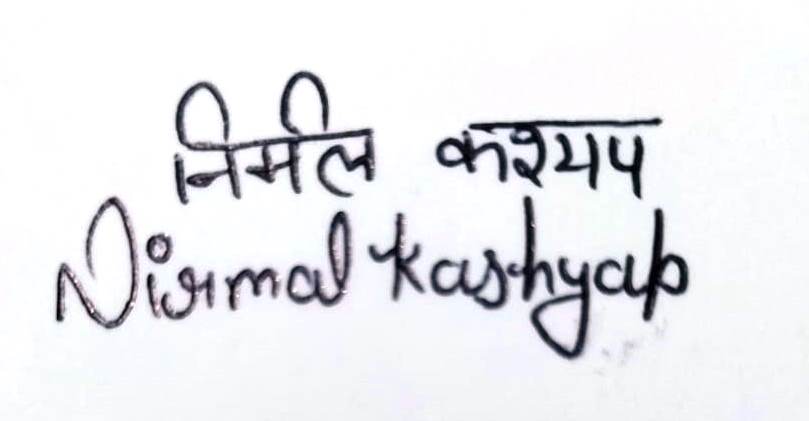 निर्मल कश्यप
Nirmal Kashyap